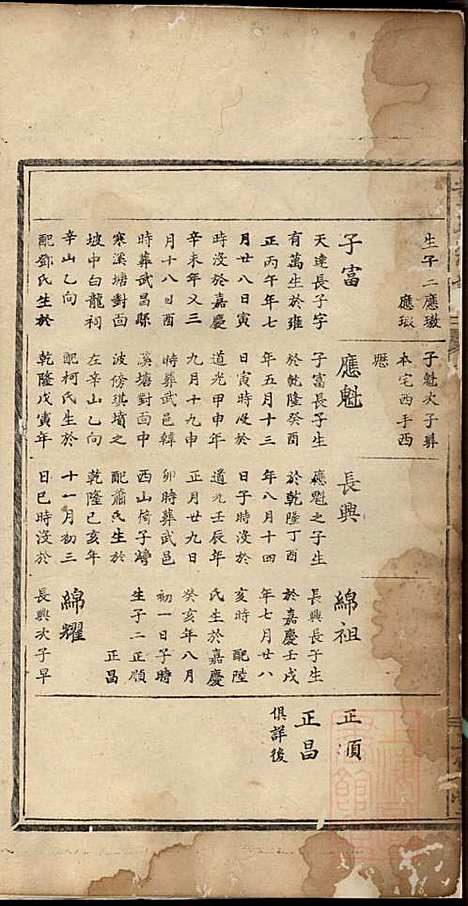 生子二應璈
應璈
子富
天達長子字
有萬生於雍
正丙午年七
月廿八日寅
時沒於嘉慶
辛未年又三
月十八日酉
時葬武昌縣
寒溪塘對面
坡中白龍祠
辛山乙向
配鄧氏生於
子魁次子辥
本宅西手西
應魁
子富長子生
於乾隆癸酉
年五月十三
日寅時歿於
道光甲申年
九月十九申
時葬武邑韓
溪塘對面中
坡傍琪墳之
左辛山乙向
配柯氏生於
乾隆戊寅年
長興
應魁之子生
於乾隆丁酉
年八月十四
日子時沒於
道光壬辰年
正月廿九日
卯時葬武邑
西山倚子灣
配蕭氏生於
乾隆己亥年
十一月初三
日巳時沒於
綿祖
長興長子生
於嘉慶壬戌
年七月廿八
亥時 配陸
氏生於嘉慶
癸亥年八月
初一日子時
生子二正順
正昌
綿耀
長興次子早
正順
正昌
俱詳後